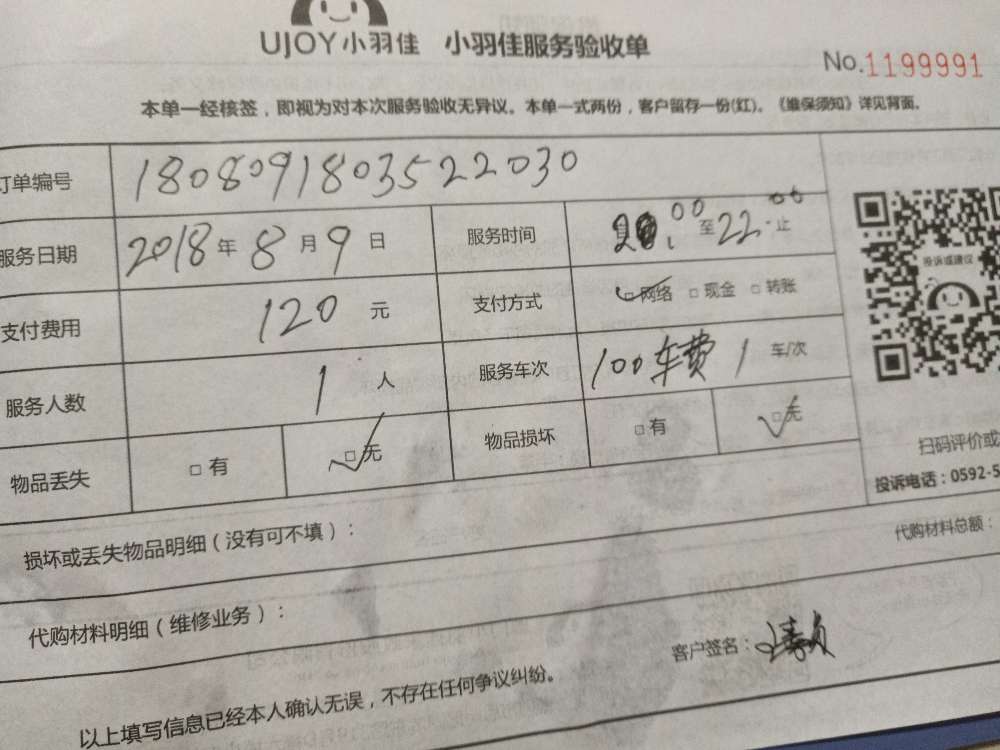 UJOY小羽佳 小羽佳服务验收单
No.1199991
本单一经核签，即视为对本次服务验收无异议。本单一式两份，客户留存一份(红)。《维保须知》详见背面。
订单编号 1808091803522030
服务日期 2018年8月9日 服务时间 20:00至22:00止
投诉或建议
支付费用 120元 支付方式 ☑网络 □现金 □转账
服务人数 1人 服务车次 100车费 1车/次
物品丢失 □有 ☑无 物品损坏 □有 ☑无
扫码评价或
投诉电话：0592-5
损坏或丢失物品明细（没有可不填）：
代购材料总额：
代购材料明细（维修业务）：
客户签名：
以上填写信息已经本人确认无误，不存在任何争议纠纷。